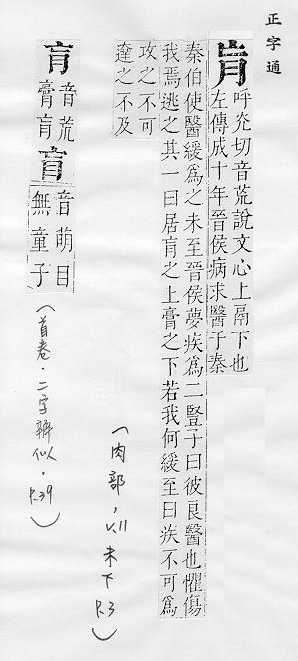 正字通
肓
呼光切音荒說文心上鬲下也
左傳成十年晉侯病求醫于秦
秦伯使醫緩爲之未至晉侯夢疾爲二豎子曰彼良醫也懼傷
我焉逃之其一曰居肓之上膏之下若我何緩至曰疾不可爲
攻之不可
達之不及
(肉部,v.11 未下 P.3)
肓
音荒
膏肓
盲
音萌目
無童子
(首卷.二字辨似.P.39)